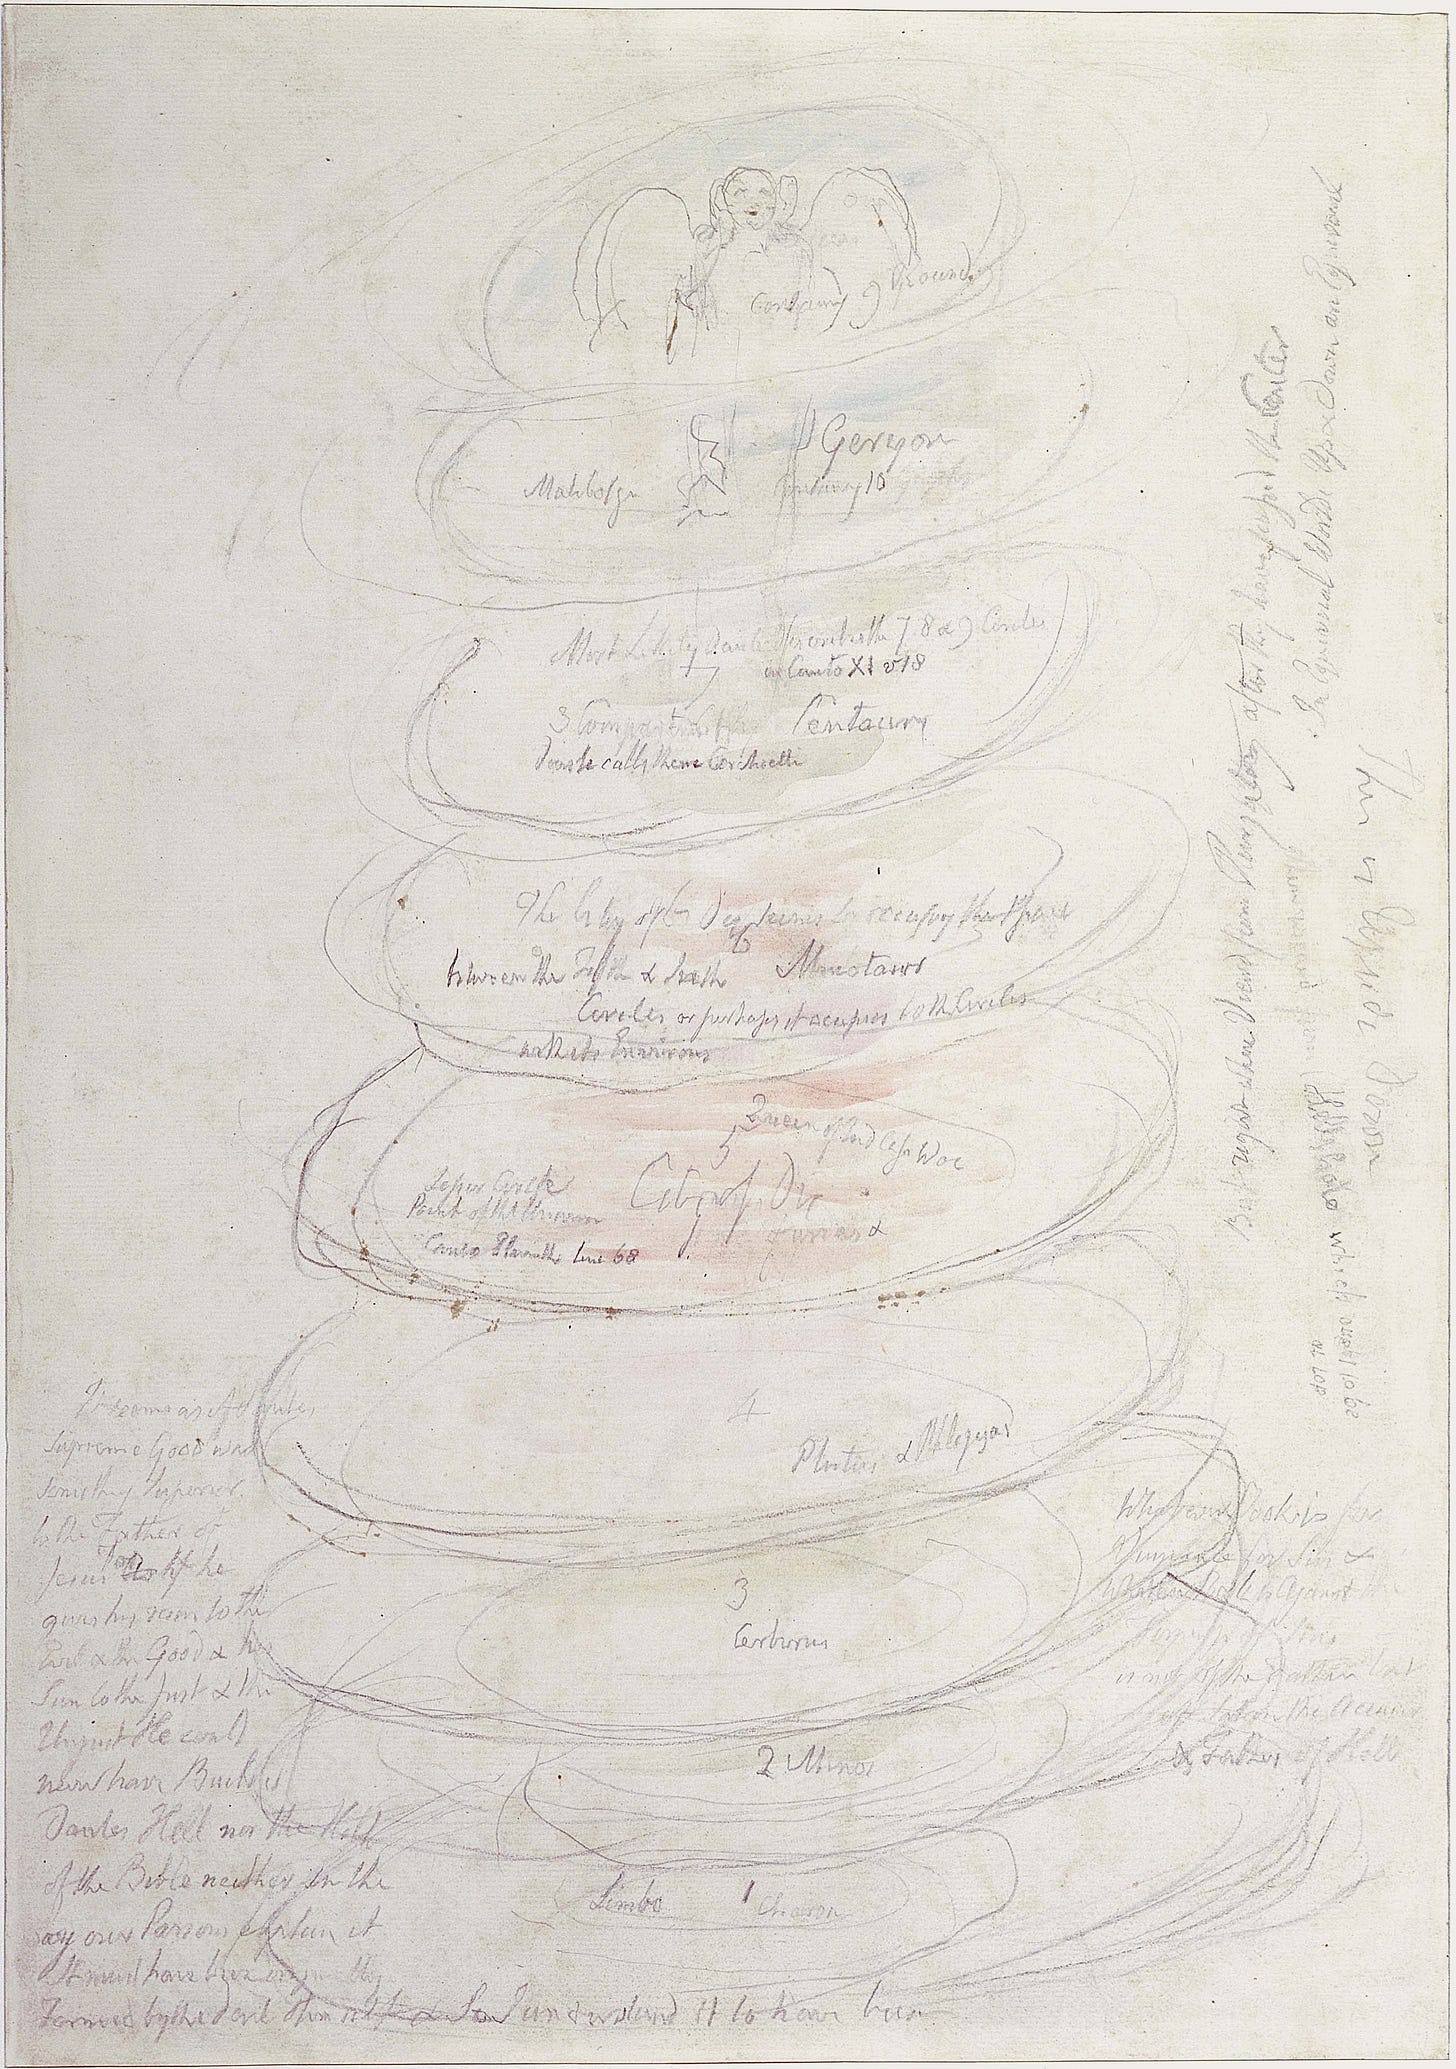 9 Round
Geryon
Malebolge
10
Most likely Dante describes the 7 8 & 9 Circles
in Canto XI v 18
7
3 Compartments
Centaurs
Dante calls them Cerchietti
The City of Dis seems to occupy the Space
6
between the Fifth & Sixth
Minotaur
Circles or perhaps it occupies both Circles
with its Environs
5
Lesser Circle
Point of the Universe
Canto Eleventh line 68
City of Dis
Furies &
Queen of Endless Woe
4
Plutus & Phlegyas
3
Cerberus
2 Minos
Limbo
1 Charon
It seems as if Dantes
supreme Good was
something Superior
to the Father of
Jesus for if he
gives his rain to the
Evil & the Good & his
Sun to the Just & the
Unjust He could
never have Builded
Dantes Hell nor the Hell
of the Bible neither in the
way our Parsons explain it
It must have been originally
Formed by the devil Himself & So I understand it to have been
Whatever Book is for
Vengeance for Sin &
Whatever Book is Against the
Forgiveness of Sins
is not of the Father but
of Satan the Accuser
& Father of Hell
This is Upside Down
But right when Viewd from Purgatory after they have passed the Center
In Equivocal Worlds Up & Down are Equivocal
which ought to be
at top